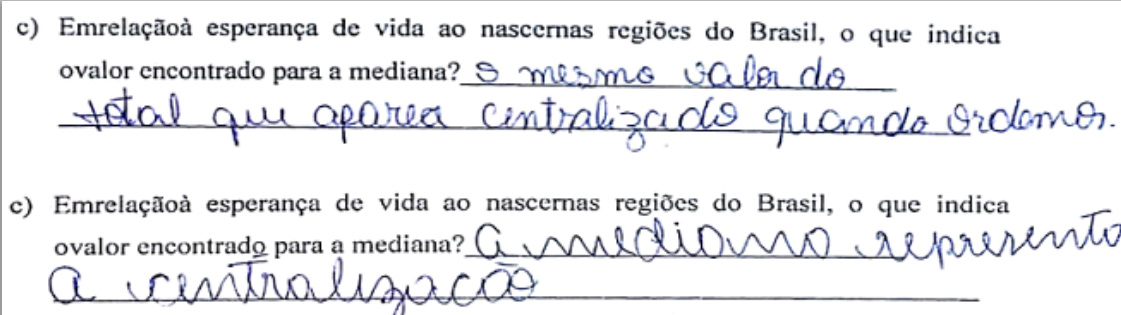 c) Emrelaçãoà esperança de vida ao nascernas regiões do Brasil, o que indica
ovalor encontrado para a mediana? O mesmo valor do
total que aparea centralizado quando ordamos.
c) Emrelaçãoà esperança de vida ao nascernas regiões do Brasil, o que indica
ovalor encontrado para a mediana? A mediana representa
a centralização